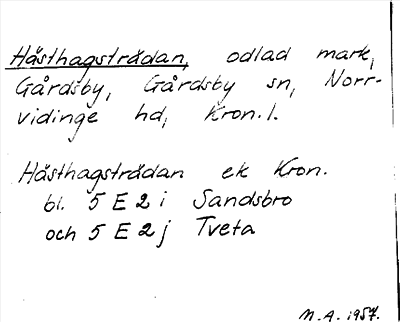 Hästhagsträdan, odlad mark,
Gårdsby, Gårdsby sn, Norr-
vidinge hd, Kron. l.
Hästhagsträdan ek Kron.
bl. 5 E 2 i Sandsbro
och 5 E 2 j Tveta
M. A. 1957.